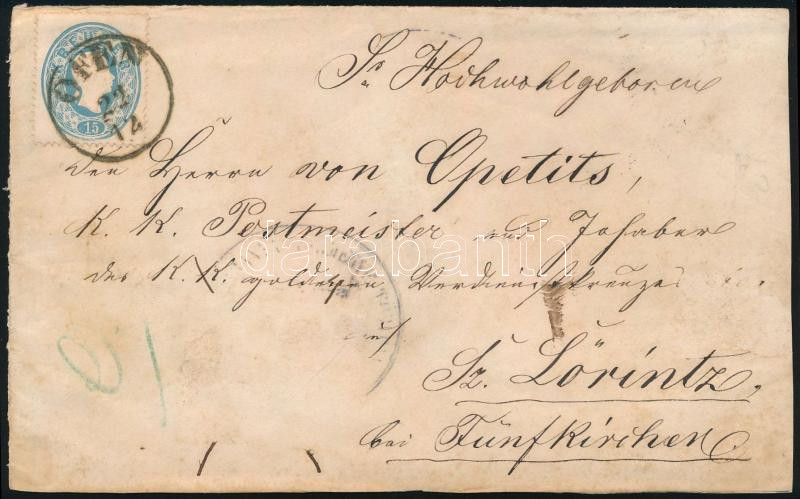 OFEN
22
12
15
Sr Hochwohlgeboren
den Herrn von Opetits,
K. K. Postmeister und Inhaber
des K. K. goldenen Verdienstkreuzes
darabanth
auf
Sz. Lörintz,
bei Fünfkirchen